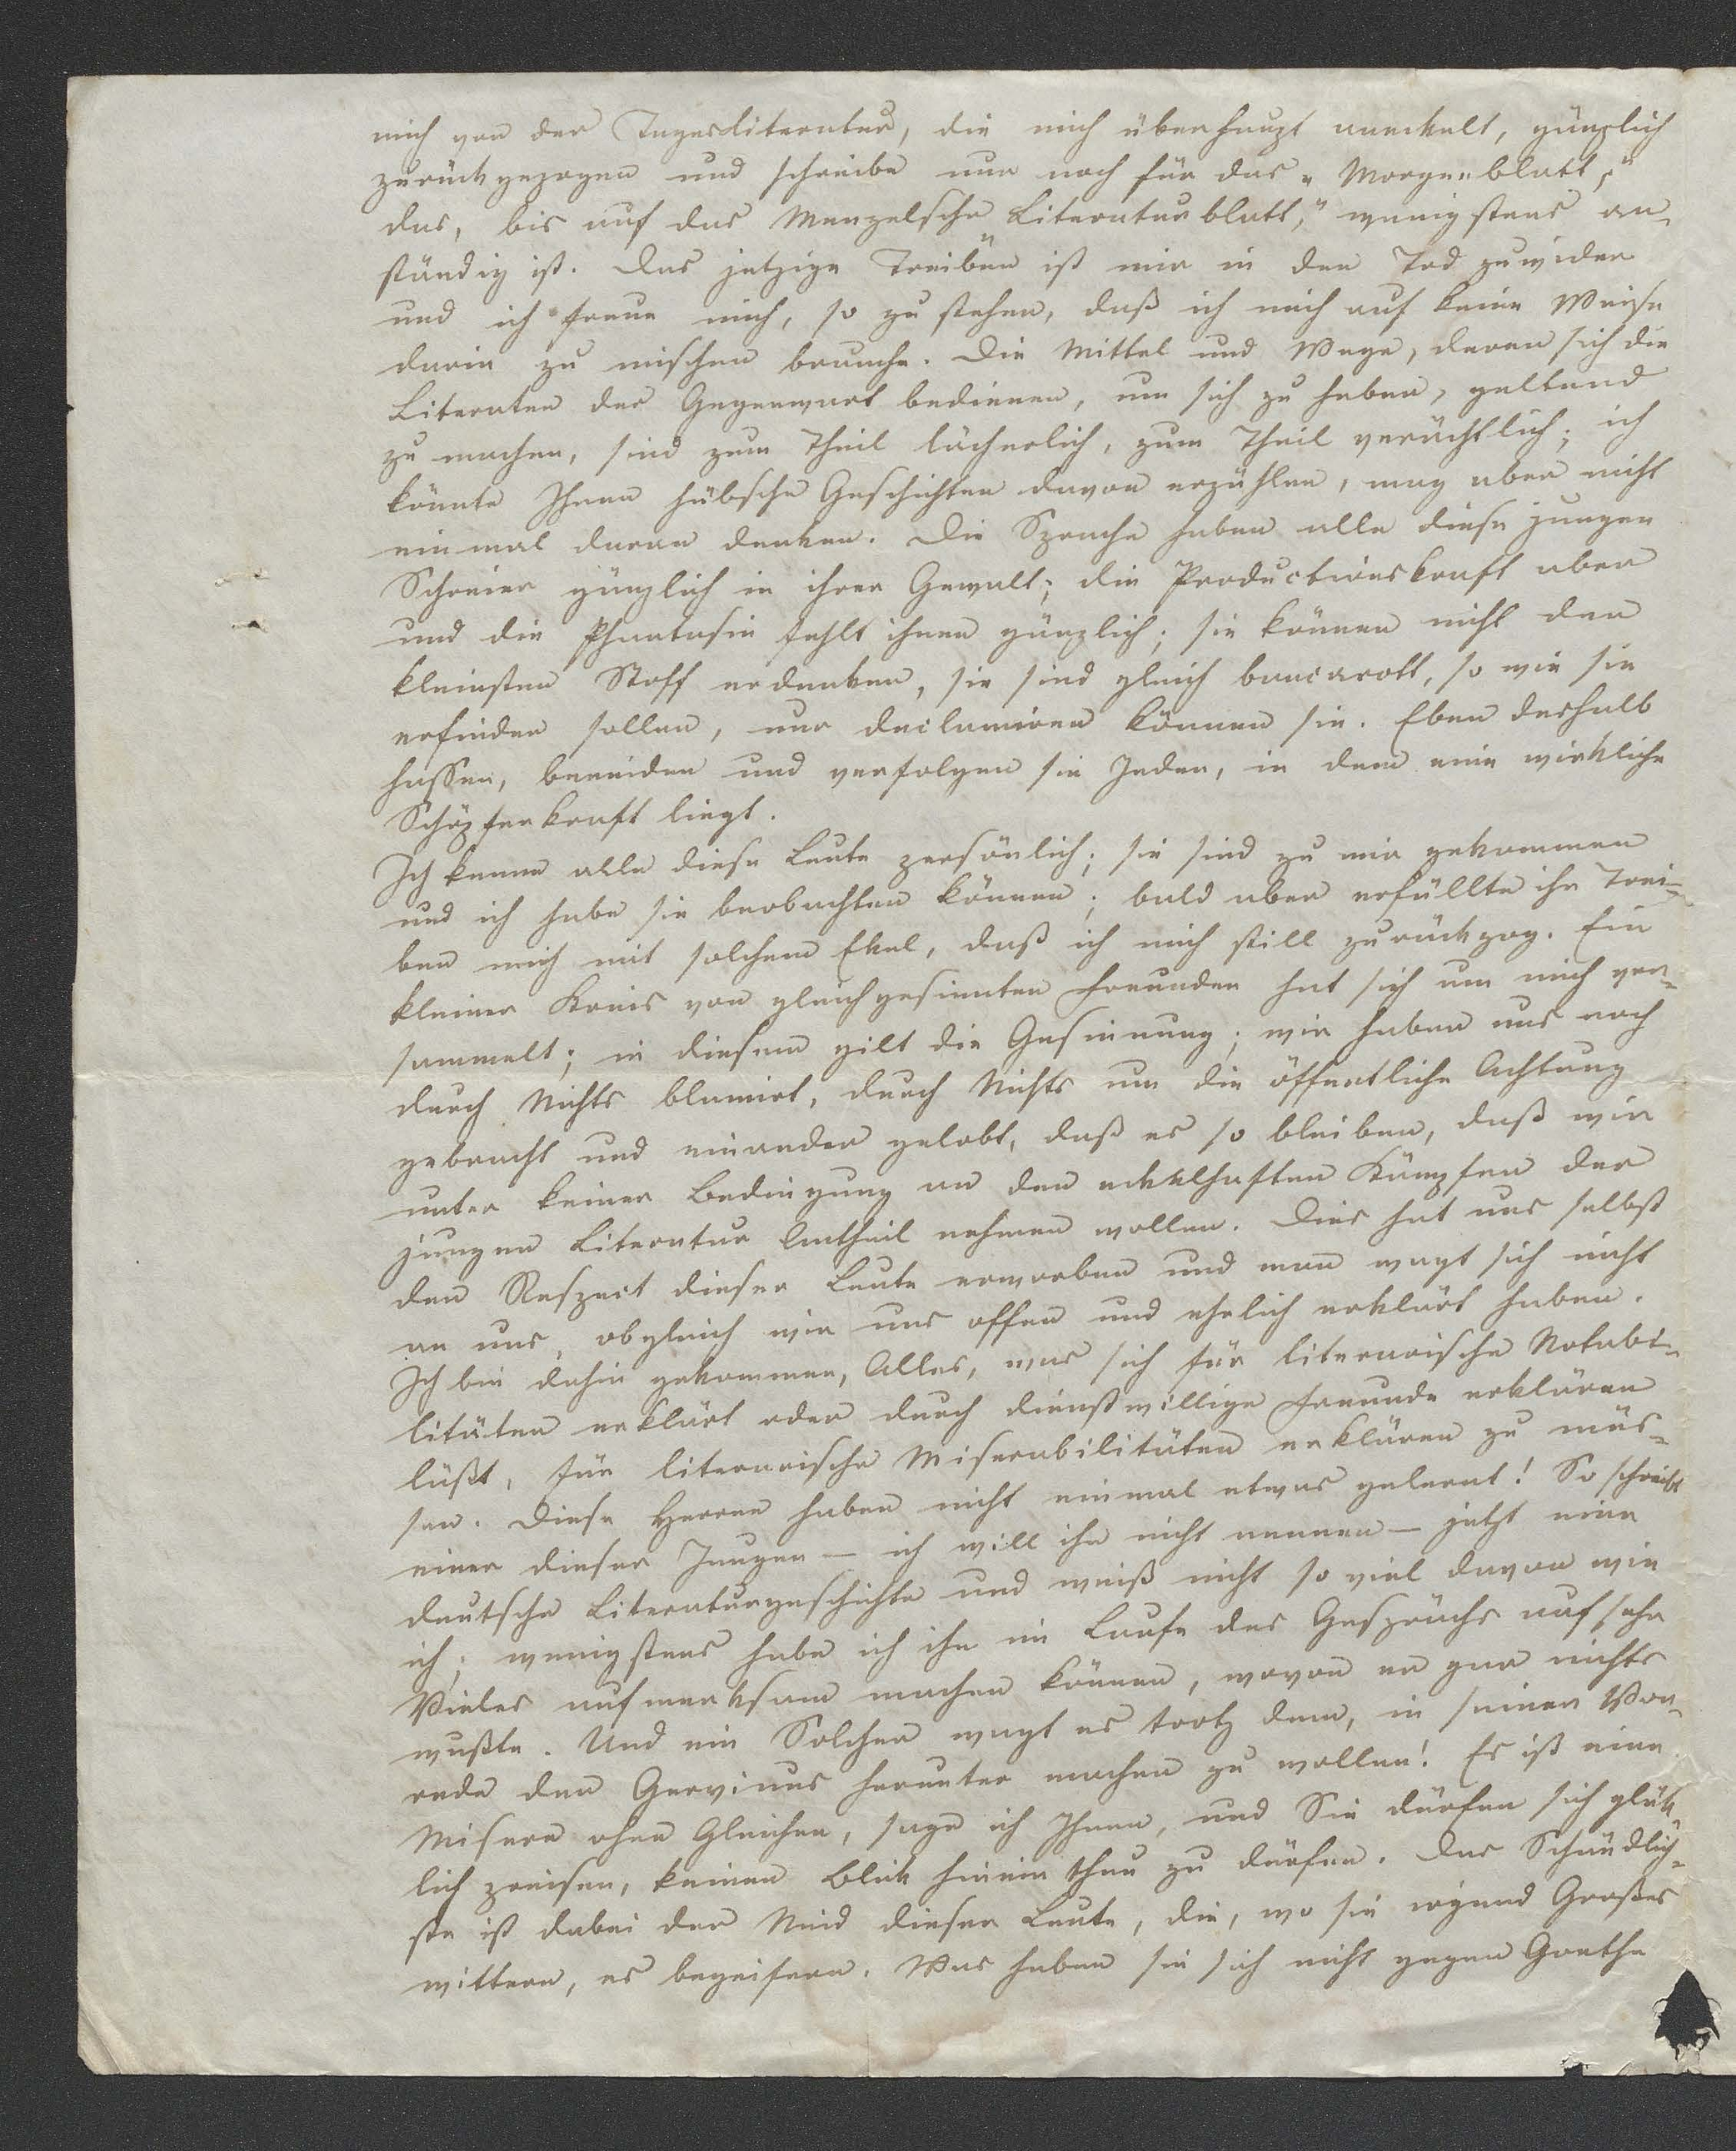 mich von der Tagesliteratur, die mich überhaupt aneckelt, gänzlich
zurückgezogen und schreibe nur noch für das „Morgenblatt,"
das, bis auf das Menzelsche „Literaturblatt," wenigstens an-
ständig ist. Das jetzige Treiben ist mir in den Tod zuwider
und ich freue mich, so zu stehen, daß ich mich auf keine Weise
darin zu mischen brauche. Die Mittel und Wege, deren sich die
Literaten der Gegenwart bedienen, um sich zu heben, geltend
zu machen, sind zum Theil lächerlich, zum Theil verächtlich; ich
könnte Ihnen hübsche Geschichten davon erzählen, mag aber nicht
einmal daran denken. Die Sprache haben alle diese jungen
Schreier gänzlich in ihrer Gewalt; die Productionskraft aber
und die Phantasie fehlt ihnen gänzlich; sie können nicht den
kleinsten Stoff erdenken, sie sind gleich bancarott, so wie sie
erfinden sollen, nur declamiren können sie. Eben deshalb
hassen, beneiden und verfolgen sie Jeden, in dem eine wirkliche
Schöpferkraft liegt.
Ich kenne alle diese Leute persönlich; sie sind zu mir gekommen
und ich habe sie beobachten können; bald aber erfüllte ihr Trei-
ben mich mit solchem Ekel, daß ich mich still zurückzog. Ein
kleiner Kreis von gleichgesinnten Freunden hat sich um mich ver-
sammelt; in diesem gilt die Gesinnung; wir haben uns noch
durch Nichts blamirt, durch Nichts um die öffentliche Achtung
gebracht und einander gelobt, daß es so bleiben, daß wir
unter keiner Bedingung an den eckelhaften Kämpfen der
jungen Literatur Antheil nehmen wollen. Dies hat uns selbst
den Respect dieser Leute erworben und man wagt sich nicht
an uns, obgleich wir uns offen und ehrlich erklärt haben.
Ich bin dahin gekommen, Alles, was sich für literarische Notabi-
litäten erklärt oder durch dienstwillige Freunde erklären
läßt, für literarische Miserabilitäten erklären zu müs-
sen. Diese Herren haben nicht einmal etwas gelernt! So schreibt
einer dieser Jungen – ich will ihn nicht nennen – jetzt eine
deutsche Literaturgeschichte und weiß nicht so viel davon wie
ich; wenigstens habe ich ihn im Laufe des Gesprächs auf sehr
Vieles aufmerksam machen können, wovon er gar nichts
wußte. Und ein Solcher wagt es trotz dem, in seiner Vor-
rede den Gervinus herunter machen zu wollen! Es ist eine
Misere ohne Gleichen, sage ich Ihnen, und Sie dürfen sich glück
lich preisen, keinen Blick hinein thun zu dürfen. Das Schändlich-
ste ist dabei der Neid dieser Leute, die, wo sie irgend Großes
wittern, es begeifern. Was haben sie sich nicht gegen Goethe